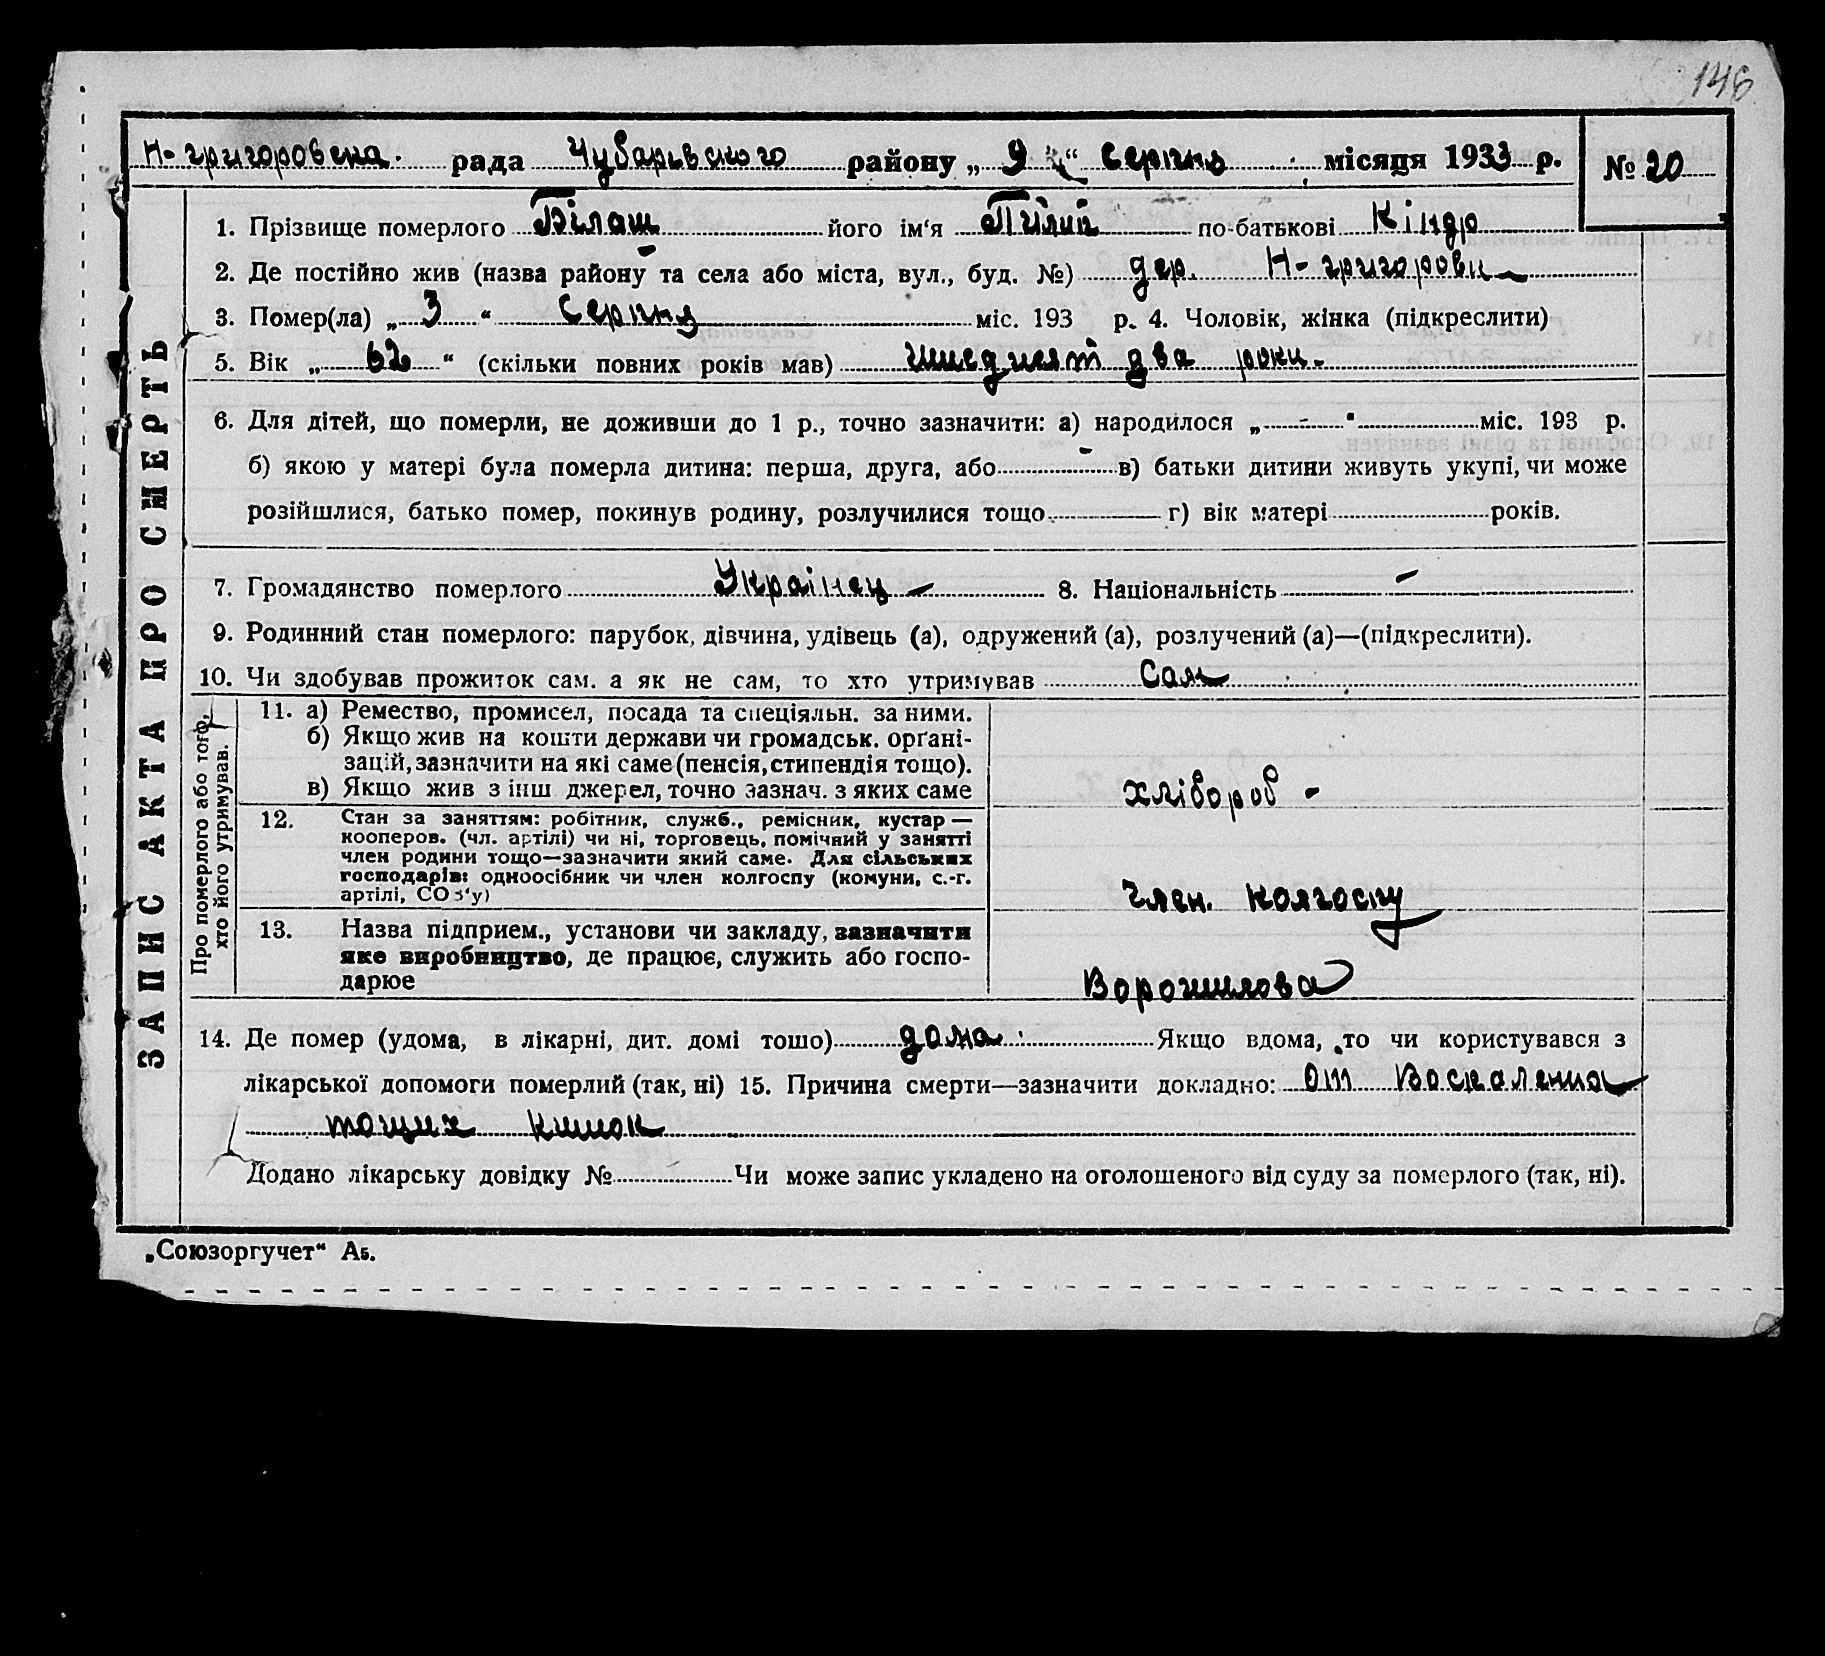 146
Н-григоровска. рада Чубарьвского району „ 9 “ Серпня місяця 1933 р. № 20
ЗАПИС АКТА ПРО СМЕРТЬ
1. Прізвище померлого Білаш його ім‘я Пилип по-батькові Кіндр
2. Де постійно жив (назва району та села або міста, вул., буд. №) дер. Н-григоровк
3. Помер(ла) „ 3 “ Серпня міс. 193 р. 4. Чоловік, жінка (підкреслити)
5. Вік „ 62 “ (скільки повних років мав) шисдисят два роки.
6. Для дітей, що померли, не доживши до 1 р., точно зазначити: а) народилося „ - “ міс. 193 р.
б) якою у матері була померла дитина: перша, друга, або - в) батьки дитини живуть укупі, чи може
розійшлися, батько помер, покинув родину, розлучилися тощо г) вік матері років.
7. Громадянство померлого Украінец - 8. Національність -
9. Родинний стан померлого: парубок, дівчина, удівець (а), одружений (а), розлучений (а)—(підкреслити).
10. Чи здобував прожиток сам. а як не сам, то хто утримував Сам
Про померлого або того,
хто його утримував.
11. а) Ремество, промисел, посада та спеціяльн. за ними.
б) Якщо жив на кошти держави чи громадськ. орґані-
зацій, зазначити на які саме (пенсія, стипендія тощо).
в) Якщо жив з інш джерел, точно зазнач. з яких саме
хлібороб -
12. Стан за заняттям: робітник, служб., ремісник, кустар —
кооперов. (чл. артілі) чи ні, торговець, помічний у занятті
член родини тощо—зазначити який саме. Для сільських
господарів: одноосібник чи член колгоспу (комуни, с.-г.
артілі, СОЗ‘у)
Член. колгоспу
13. Назва підприєм., установи чи закладу, зазначити
яке виробництво, де працює, служить або госпо-
дарює
Ворошилова
14. Де помер (удома, в лікарні, дит. домі тошо) дома. Якщо вдома, то чи користувався з
лікарської допомоги померлий (так, ні) 15. Причина смерти—зазначити докладно: От Воскаления
тощих кишок
Додано лікарську довідку № Чи може запис укладено на оголошеного від суду за померлого (так, ні).
„Союзоргучет“ А5.